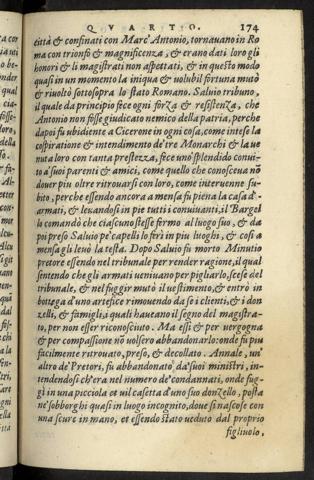 QVARTO. 174
città & confinati con Marc'Antonio, tornauano in Ro
ma con trionfo & magnificenza, & erano dati loro gli
honori & li magistrati non aspettati, & in questo modo
quasi in un momento la iniqua & uolubil fortuna mutò
& riuoltò sottosopra lo stato Romano. Saluio tribuno,
il quale da principio fece ogni forza & resistenza, che
Antonio non fosse giudicato nemico della patria, perche
dapoi fu ubidiente a Cicerone in ogni cosa, come intese la
cospiratione & intendimento de' tre Monarchi & la ue
nuta loro con tanta prestezza, fece uno splendido conui-
to a suoi parenti & amici, come quello che conosceua nõ
douer piu oltre ritrouarsi con loro, come interuenne su-
bito, perche essendo ancora a mensa fu piena la casa d'
armati, & leuandosi in pie tutti i conuiuanti, il Bargel
lo comandò che ciascuno stesse fermo al luogo suo, & da
poi preso Saluio pe' capelli lo ferì in piu luoghi, & cosi a
mensa gli leuò la testa. Dopo Saluio fu morto Minutio
pretore essendo nel tribunale per render ragione, il qual
sentendo che gli armati ueniuano per pigliarlo, scese del
tribunale, & nel fuggir mutò il uestimento, & entrò in
bottega d'uno artefice rimouendo da se i clienti, & i don
zelli, & famigli, i quali haueano il segno del magistra-
to, per non esser riconosciuto. Ma essi & per uergogna
& per compassione nõ uolsero abbandonarlo: onde fu piu
facilmente ritrouato, preso, & decollato. Annale, un'
altro de' Pretori, fu abbandonato da' suoi ministri, in-
tendendosi ch'era nel numero de' condannati, onde fug-
gì in una picciola et uil casetta d'uno suo donzello, posta
ne' sobborghi quasi in luogo incognito, doue si nascose con
una scure in mano, et essendo stato ueduto dal proprio
figliuolo,